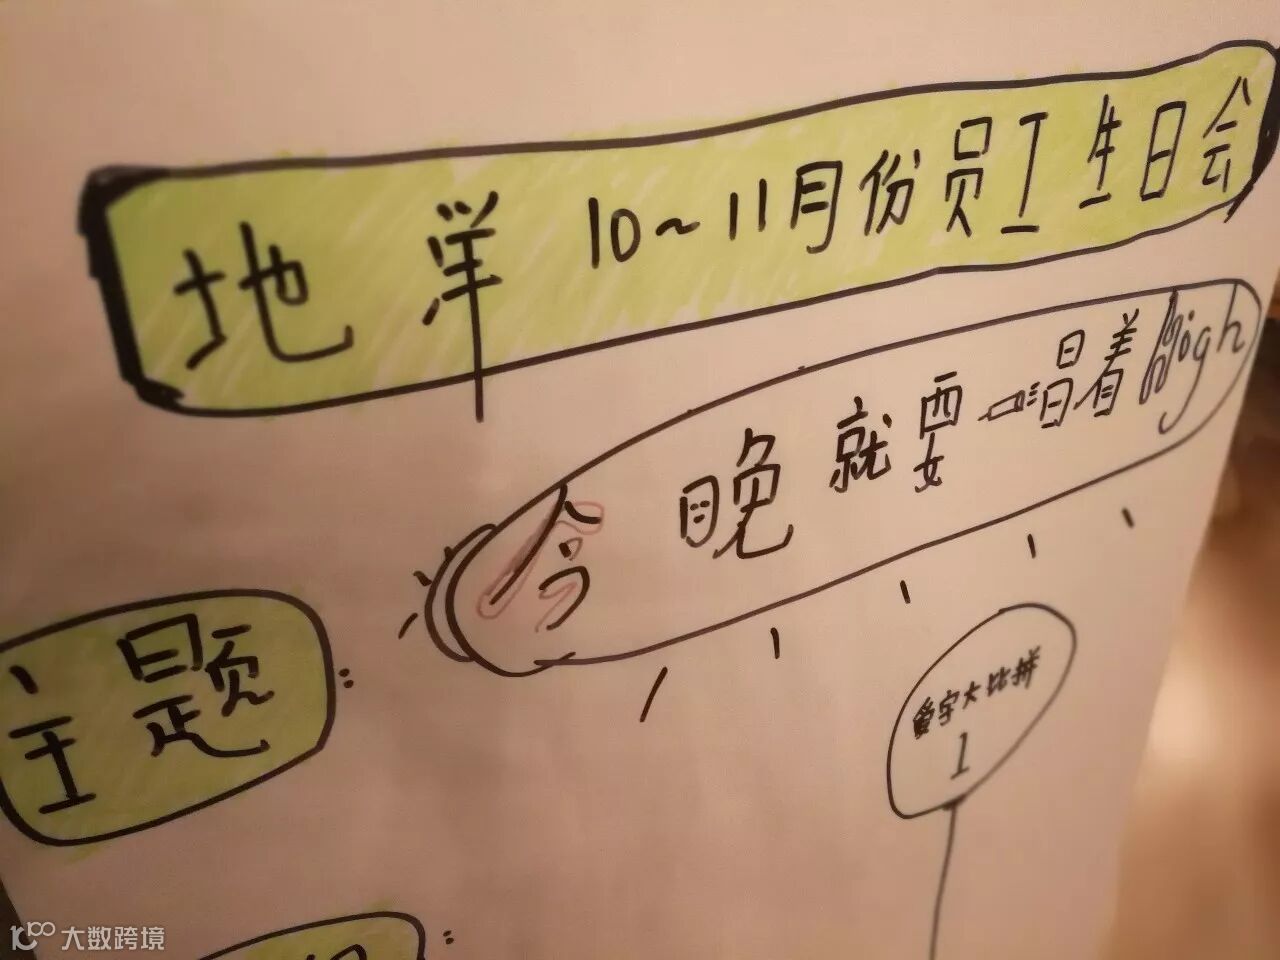 地洋 10~11月份员工生日会
今晚就要唱着high
主题:
爱字大比拼
1
大数跨境